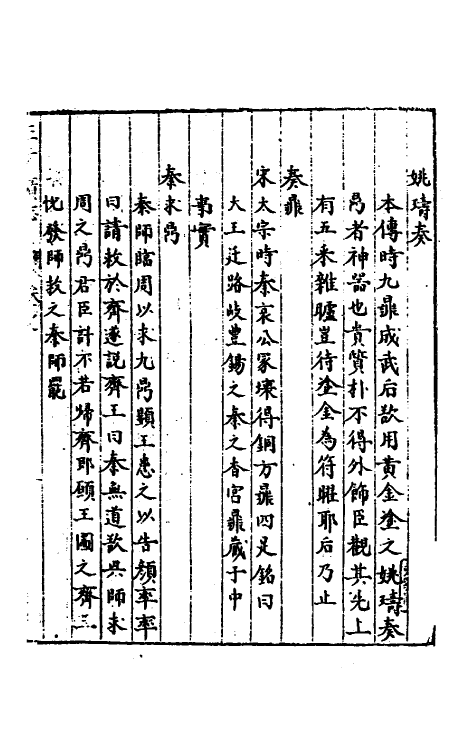 姚璹奏
本傳時九鼎成武后欲用黃金塗之姚璹奏
鼎者神器也貴質朴不得外飾臣觀其先上
有五釆雜㬋豈待塗金為符曜耶后乃止
秦鼎
宋太宗時秦哀公冢壞得銅方鼎四足銘曰
大王迁路岐豊錫之秦之春宮鼎藏于中
事實
秦求鼎
秦師臨周以求九鼎顯王患之以告顏率率
曰請救於齊遂説齊王曰秦無道欲興師求
周之鼎君臣計不若歸齊即願王圖之齊王
忱發師救之秦師罷